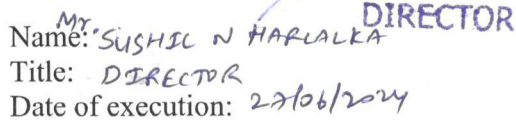 DIRECTOR
Name: Mr. SUSHIL N HARLALKA
Title: DIRECTOR
Date of execution: 27/06/2024